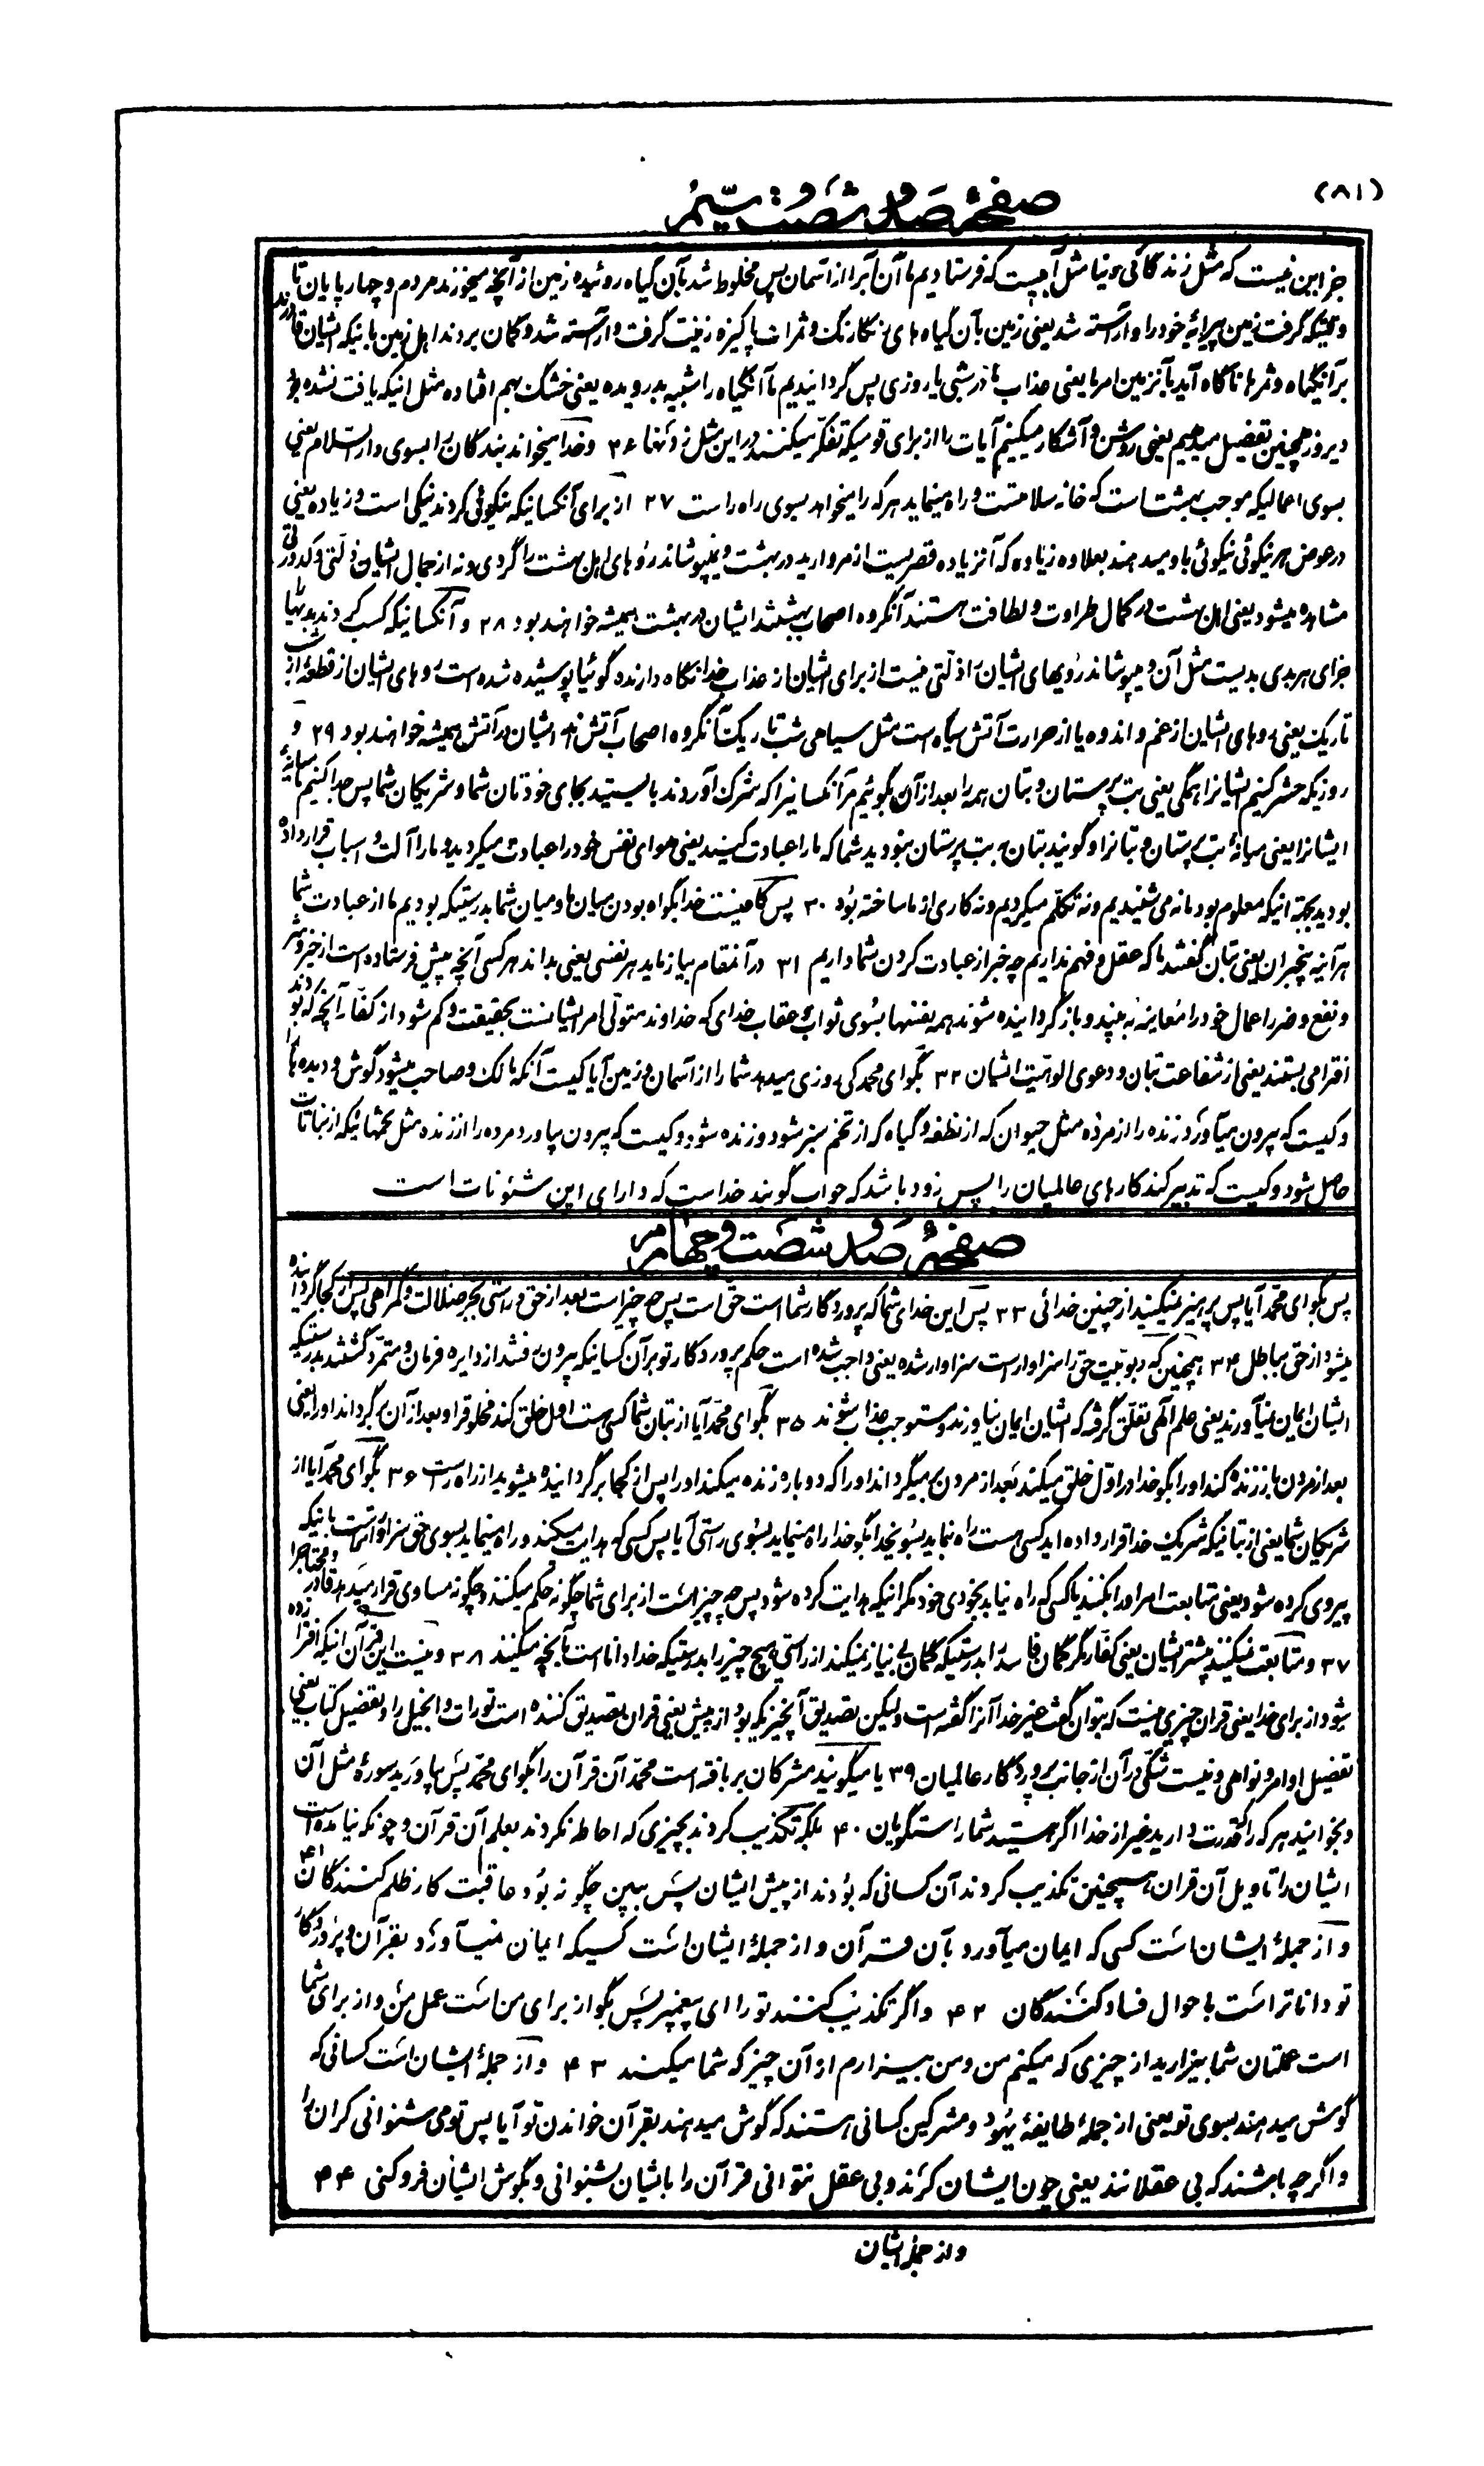 (۸۱)
صفحهٔ صد و شصت و سیّم
جز این نیست که مثل زندگانی دنیا مثل آبیست که فرستادیم ما آن آبرا از آسمان پس مخلوط شد بآن گیاه روئیده زمین از آنچه میخورند مردم و چهارپایان تا
وقتیکه گرفت زمین پیرایه خود را و آراسته شد یعنی زمین بآن گیاه های رنگارنگ و ثمرات پاکیزه زینت گرفت و آراسته شد و گمان بردند اهل زمین بانیکه ایشان قادرند
بر آنگیاه و ثمرها ناگاه آید بآنزمین امر ما یعنی عذاب ما در شبی یا روزی پس گردانیدیم ما آنگیاه را شبیه بدرویده یعنی خشک بهم افتاده مثل انیکه یافت نشده بود
دیروز همچنین تفصیل میدهیم یعنی روشن و آشکار میکنیم آیات را از برای قومیکه تفکّر میکنند در این مثل زدنها ۲۶ و خدا میخواند بندگان را بسوی دار السّلام یعنی
بسوی اعمالیکه موجب بهشت است که خانه سلامتست و راه مینماید هر که را میخواهد بسوی راه راست ۲۷ از برای آنکسانیکه نیکوئی کردند نیکی است و زیاده یعنی
در عوض هر نیکوئی نیکوئی باو میدهند بعلاوه زیاده که آنزیاده قصریست از مروارید در بهشت و نمیپوشاند روهای اهل بهشت را گردی و نه از جمال ایشان ذلّتی و کدورتی
مشاهده میشود یعنی اهل بهشت در کمال طراوت و لطافت هستند آنگروه اصحاب بهشتند ایشان در بهشت همیشه خواهند بود ۲۸ و آنکسانیکه کسب کردند بدیها
جزای هر بدی بدیست مثل آن و میپوشاند رویهای ایشان را ذلّتی نیست از برای ایشان از عذاب خدا نگاه دارنده گوئیا پوشیده شده است روهای ایشان از قطعهٔ از شب
تاریک یعنی روهای ایشان از غم و اندوه یا از حرارت آتش سیاه است مثل سیاهی شب تاریک آنگروه اصحاب آتش‌اند ایشان در آتش همیشه خواهند بود ۲۹ و
روزیکه حشر کنیم ایشانرا همگی یعنی بت پرستان و بتان همه را بعد از آن بگوئیم مر آنکسانیرا که شرک آوردند بایستید بجای خودتان شما و شریکان شما پس جدا کنیم میانهٔ
ایشانرا یعنی میانهٔ بت پرستان و بتانرا و گویند بتان به بت پرستان نبودید شما که ما را عبادت کنید یعنی هوای نفس خود را عبادت میکردید و ما را آلت و اسباب قرار داده
بودید بجهته انیکه معلوم بود ما نه می شنیدیم و نه تکلّم میکردیم و نه کاری از ما ساخته بود ۳۰ پس کافیست خدا بگواه بودن میان ما و میان شما بدرستیکه بودیم ما از عبادت شما
هر آینه بیخبران یعنی بتان گفتند ما که عقل و فهم نداریم چه خبر از عبادت کردن شما داریم ۳۱ در آنمقام بیازماید هر نفسی یعنی بداند هر کسی آنچه پیش فرستاده است از خیر و شر
و نفع و ضرر اعمال خود را معاینه به بیند و باز گردانیده شوند همه نفسها بسوی ثواب و عقاب خدای که خداوند متولّی امر ایشانست بحقیقت و گم شود از کفّار آنچه که بودند
افترا می بستند یعنی از شفاعت بتان و دعوی الوهیّت ایشان ۳۲ بگو ای محمد کی روزی میدهد شما را از آسمان و زمین آیا کیست آنکه مالک و صاحب میشود گوش و دیده ها را
و کیست که بیرون میآورد زنده را از مرده مثل حیوان که از نطفه و گیاه که از تخم سبز شود و زنده شود و کیست که بیرون بیاورد مرده را از زنده مثل تخمهائیکه از نباتات
حاصل شود و کیست که تدبیر کند کارهای عالمیان را پس زود باشد که جواب گویند خداست که دارای این شئونات است
صفحهٔ صد و شصت و چهارم
پس بگو ای محمّد آیا پس پرهیز نمیکنید از چنین خدائی ۳۳ پس این خدای شما که پروردگار شما است حقّ است پس چه چیز است بعد از حق و راستی بجز ضلالت و گمراهی پس از کجا گردانیده
میشود از حق بباطل ۳۴ همچنین که ربوبیّت حق را سزاوار است سزاوار شده یعنی واجب شده است حکم پروردگار تو بر آن کسانیکه بیرون رفتند از دایره فرمان و متمرّد گشتند بدرستیکه
ایشان ایمان نمیآورند یعنی علم الهی تعلّق گرفته که ایشان ایمان نیاورند و مستوجب عذاب شوند ۳۵ بگو ای محمّد آیا از بتان شما کسی هست اوّل خلق کند مخلوقرا و بعد از آن برگرداند او را یعنی
بعد از مردن باز زنده کند او را بگو خدا در اوّل خلق میکند بعد از مردن برمیگرداند او را که دوباره زنده میکند او را پس از کجا برگردانیده میشوید از راه راست ۳۶ بگو ای محمد آیا از
شریکان شما یعنی از بتانیکه شریک خدا قرار داده اید کسی هست راه نماید بسوی خدا بگو خدا راه مینماید بسوی راستی آیا پس کسی که هدایت میکند و راه مینماید بسوی حق سزاوارتر است بانیکه
پیروی کرده شود یعنی متابعت امر او را بکنند یا کسی که راه نیابد بخودی خود مگر انیکه هدایت کرده شود پس چه چیز است از برای شما چگونه حکم میکنند و چگونه مساوی قرار میدهد قادر و محتاجرا
۳۷ و متابعت نمیکنند بیشتر ایشان یعنی کفّار مگر گمان فاسد را بدرستیکه گمان بی نیاز نمیکند از راستی هیچ چیز را بدرستیکه خدا دانا است بآنچه میکنند ۳۸ و نیست این قرآن انیکه افترا زده
شود از برای خدا یعنی قران چیزی نیست که بتوان گفت غیر خدا آنرا گفته است ولیکن تصدیق آنچیزیکه بود از پیش یعنی قران تصدیق کننده است تورات و انجیل را و تفصیل کتاب یعنی
تفصیل اوامر و نواهی و نیست شکّی در آن از جانب پروردگار عالمیان ۳۹ یا میگویند مشرکان بر بافته است محمّد آن قرآن را بگو ای محمّد پس بیاورید سورهٔ مثل آن
و بخوانید هر که را قدرت دارید غیر از خدا اگر هستید شما راستگویان ۴۰ بلکه تکذیب کردند بچیزی که احاطه نکردند بعلم آن قرآن و چونکه نیامده است
ایشان را تاویل آن قران همچنین تکذیب کردند آن کسانی که بودند از پیش ایشان پس ببین چگونه بود عاقبت کار ظلم کنندگان ۴۱
و از جملهٔ ایشان است کسی که ایمان میآورد بآن قرآن و از جملهٔ ایشان است کسیکه ایمان نمیآورد بقرآن و پروردگار
تو داناتر است باحوال فساد کنندگان ۴۲ و اگر تکذیب کنند تو را ای پیغمبر پس بگو از برای من است عمل من و از برای شما
است عملتان شما بیزارید از چیزی که میکنم من و من بیزارم از آن چیز که شما میکنند ۴۳ و از جملهٔ ایشان است کسانی که
گوش میدهند بسوی تو یعنی از جملهٔ طایفهٔ یهود و مشرکین کسانی هستند که گوش میدهند بقرآن خواندن تو آیا پس تو می شنوانی کران را
و اگر چه باشند که بی عقلانند یعنی چون ایشان کرند و بی عقل نتوانی قرآن را بایشان بشنوانی و بگوش ایشان فرو کنی ۴۴
و از جملهٔ ایشان